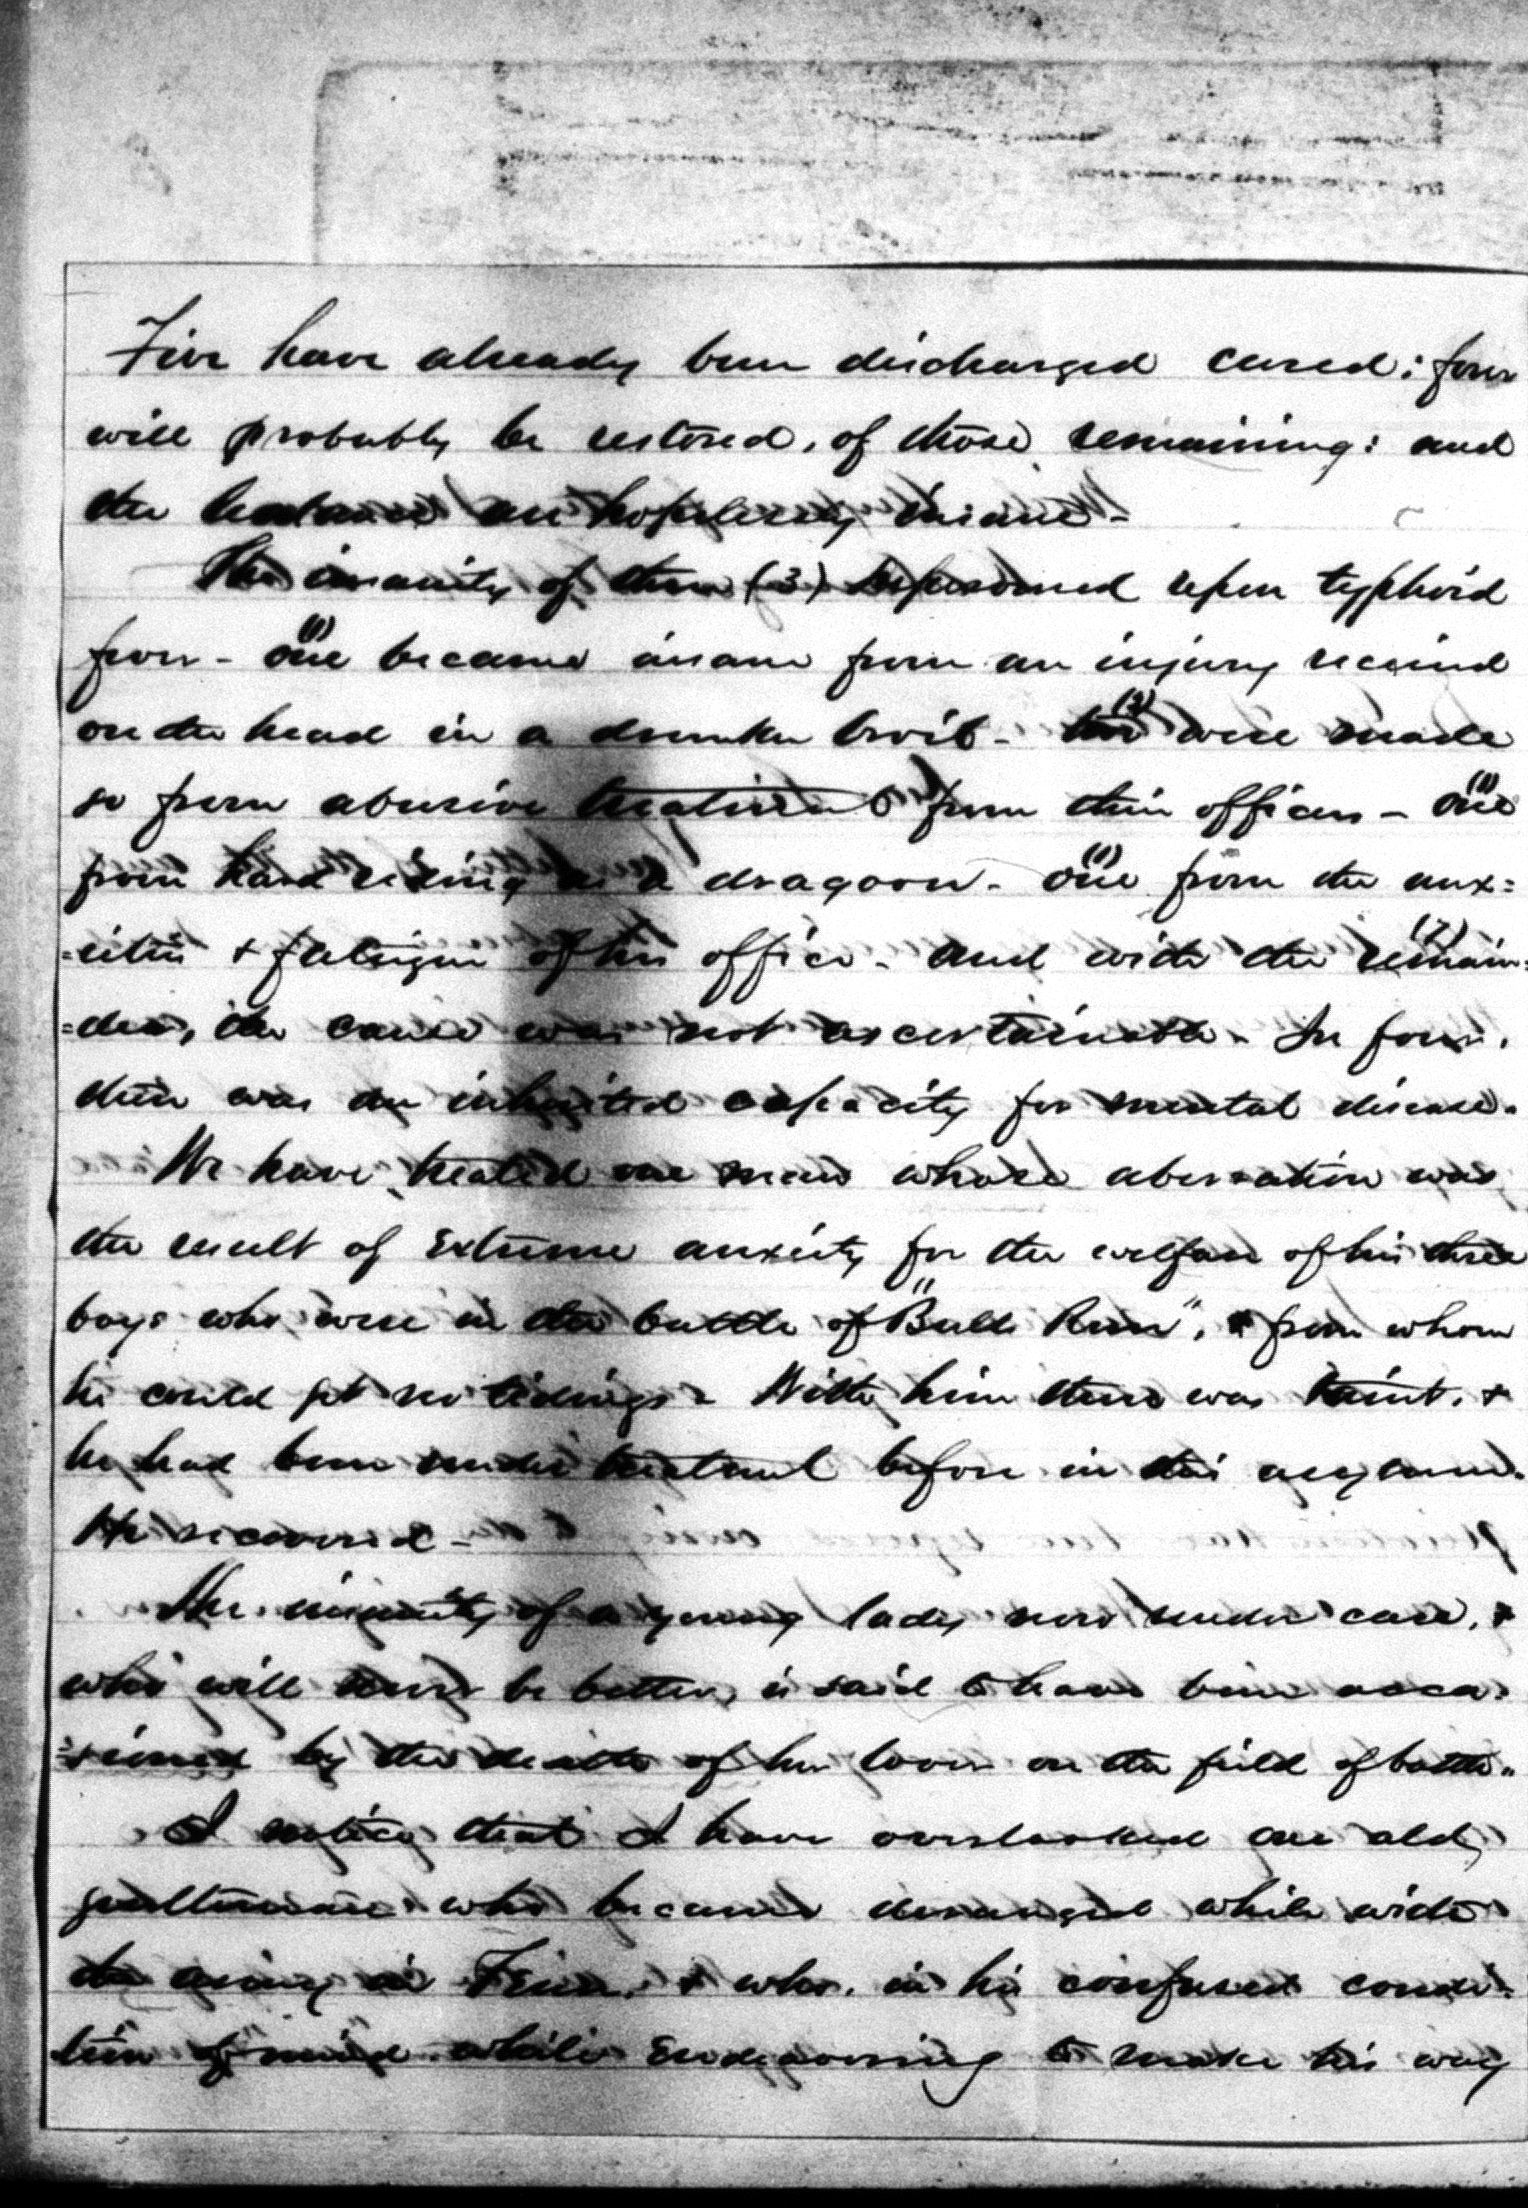 Five have already been discharged cured: four
will probably be restored, of those remaining: and
the balance are hopelessly insane -
The insanity of three (3) supervened upon typhoid
fever - (1) one became insane from an injury received
on the head in a drunken broil - (2) two were made
so from abusive treatment from their officers - (1) one
from hard riding as a dragoon - (1) one from the anx=
=ieties & fatigue of his office - and with the (7) remain=
=der, the cause was not ascertainable - In four,
there was an inherited capacity for mental disease.
We have treated one man whose aberration was
the result of extreme anxiety for the welfare of his three
boys who were in the battle of "Bull Run", & from whom
he could get no tidings - With him there was taint, &
he had been under treatment before in this asylum.
He recovered -
The insanity of a young lady now under care, &
who will never be better, is said to have been occa=
=sioned by the death of her lover on the field of battle.
I notice that I have overlooked one old
gentleman who became deranged while with
the army in Tenn. & who, in his confused condi=
tion of mind while endeavoring to make his way